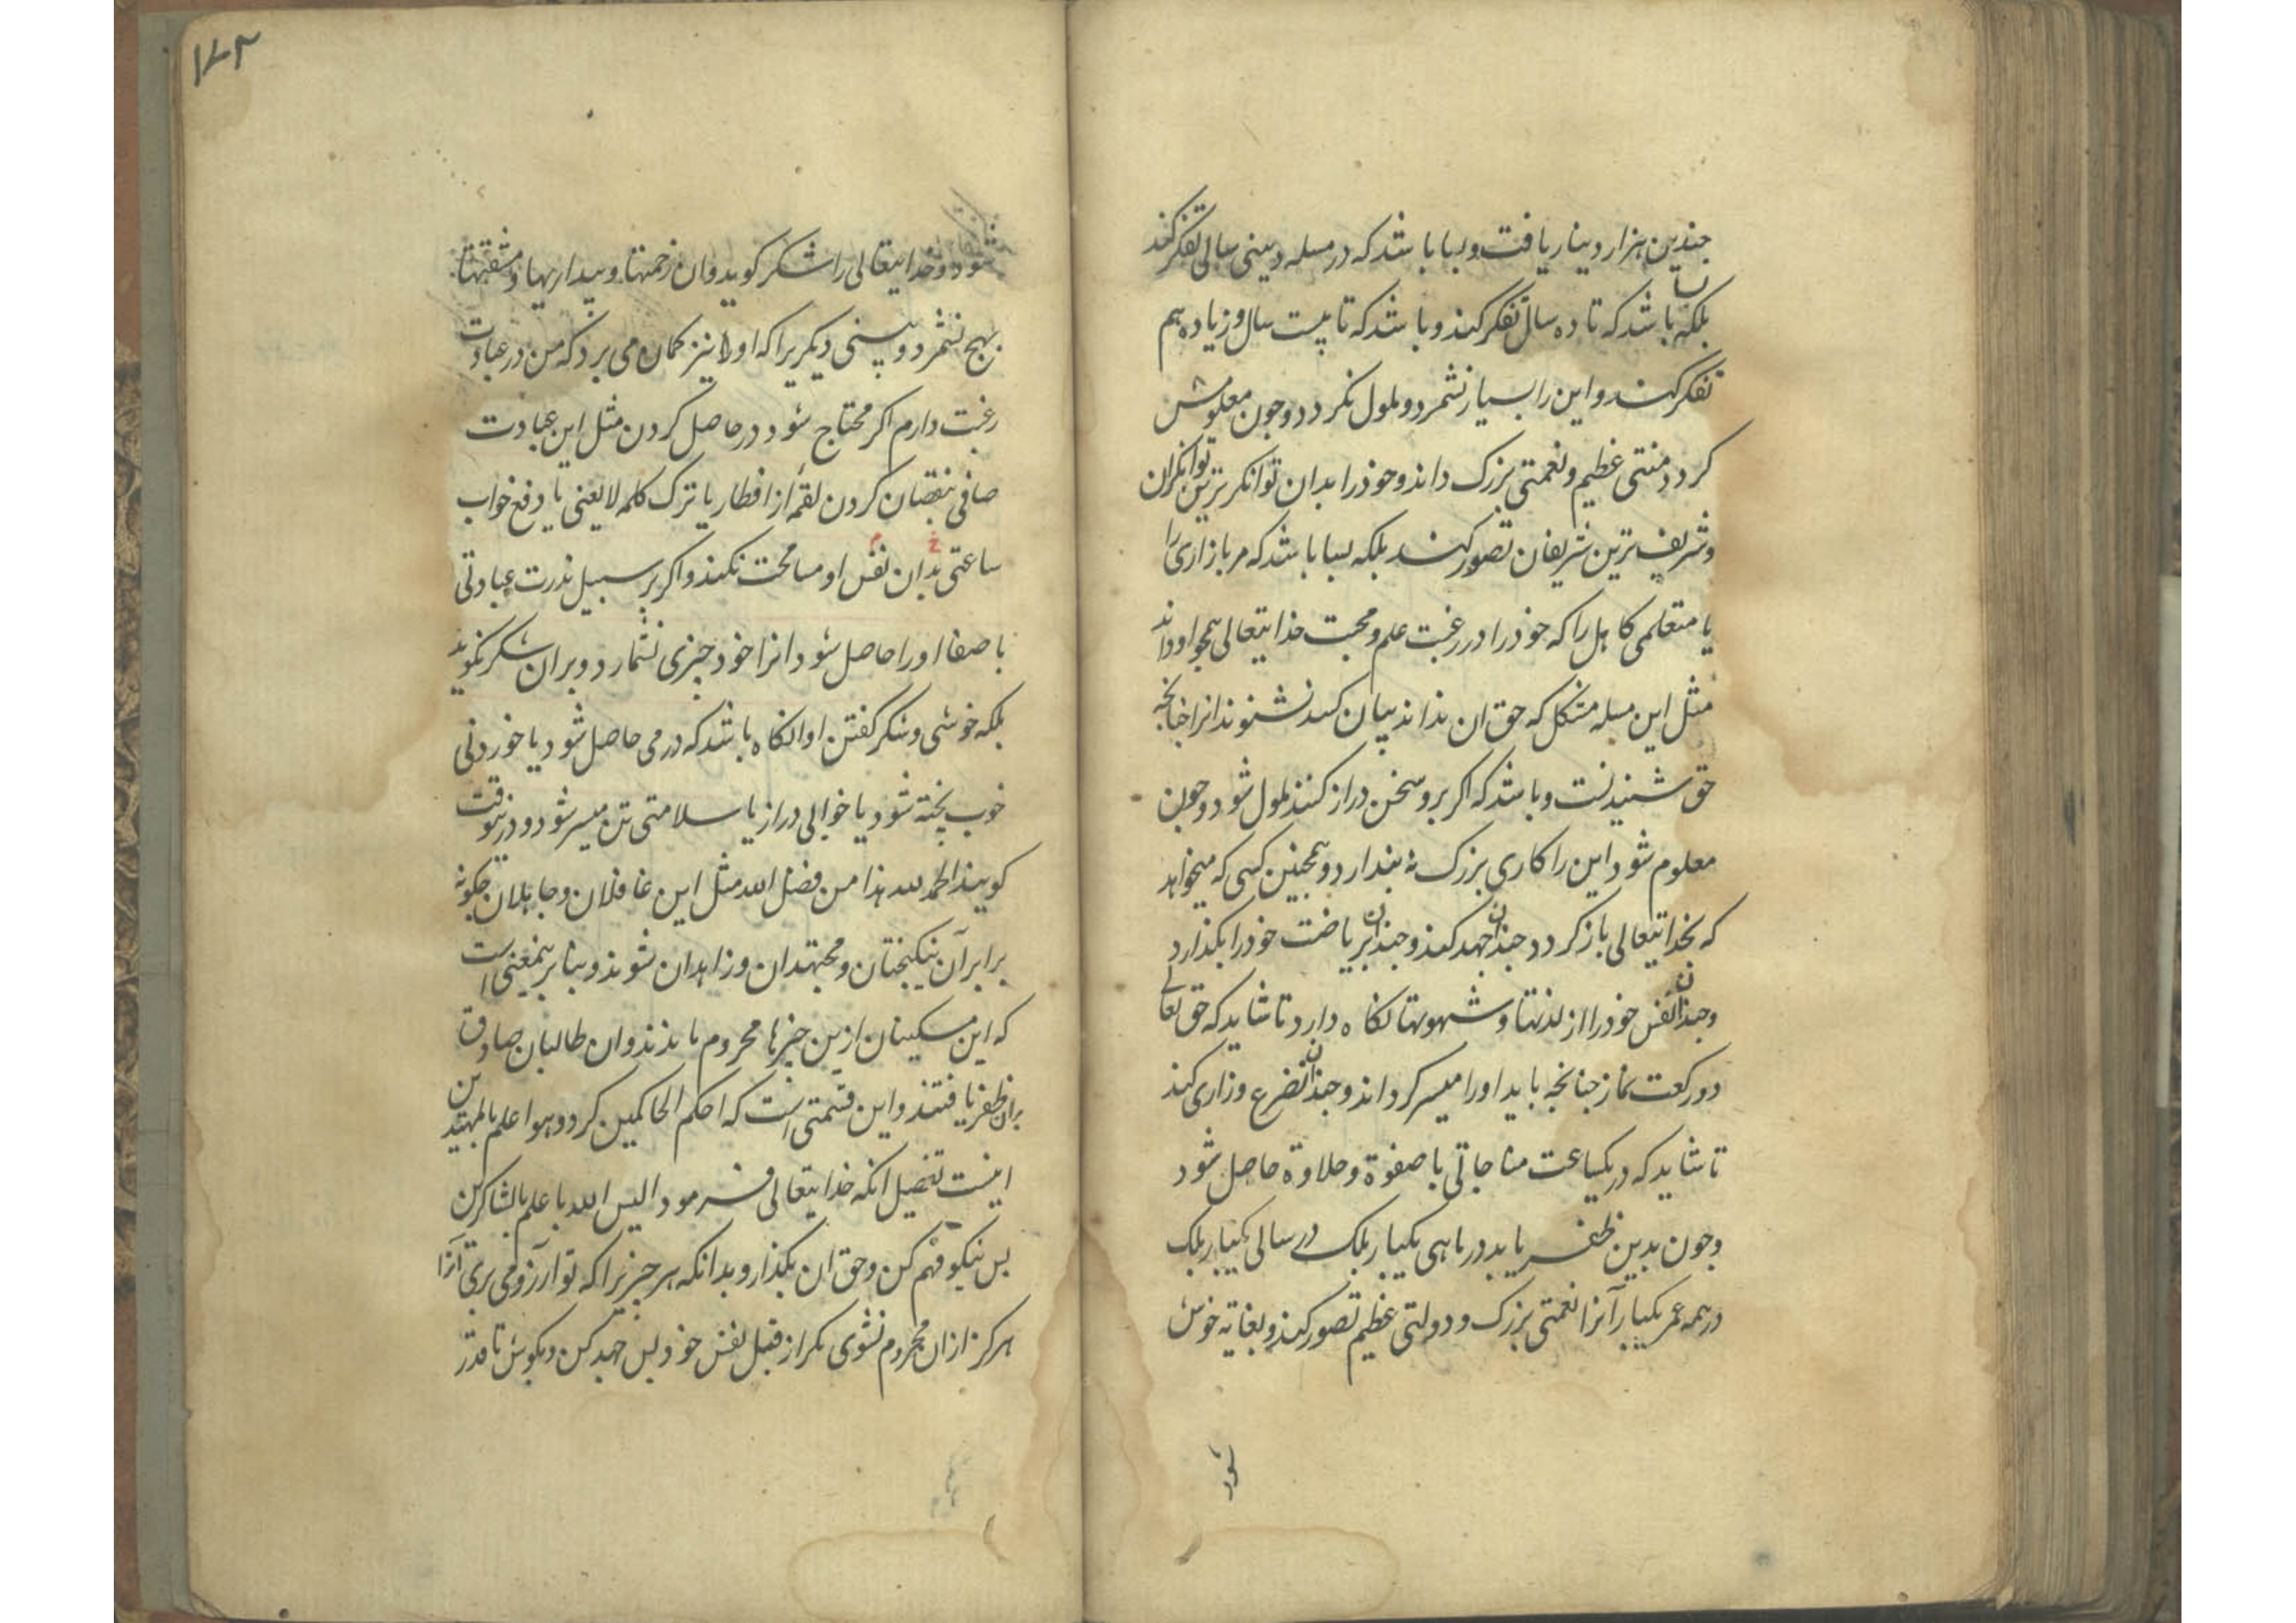 چندین هزار دینار یافت و بسا باشد که در مسله دینی سالی تفکر کند
بلکه بسا باشد که تا ده سال تفکر کند و باشد که تا بیست سال و زیاده هم
تفکر کند و این را بسیار نشمرد و ملول نکردد و چون معلومش
کردد منتی عظیم و نعمتی بزرک داند و خود را بدان توانکرترین توانکران
و شریف ترین شریفان تصور کند بلکه بسا باشد که مر بازاری را
یا متعلمی کاهل را که خود را در رغبت علم و محبت خدایتعالی همچو او داند
مثل این مسله مشکل که حق ان نداند بیان کند نشنوند انرا چنانچه
حق شنیدنست و باشد که اکر برو سخن دراز کنند ملول شود و چون
معلوم شود این را کاری بزرک نه پندارد و همچنین کسی که میخواهد
که بخدایتعالی باز کردد چندان جهد کند و چندان بریاضت خود را بکذارد
و چندان نفس خود را از لذتها و شهوتها نکاه دارد تا شاید که حق تعالی
دو رکعت نماز چنانچه باید او را میسر کرداند و چندان تضرع و زاری کند
تا شاید که در یکساعت مناجاتی با صفوة و حلاوة حاصل شود
و چون بدین ظفر یابد در ماهی یکبار بلک در سالی یکبار بلک
در همه عمر یکبار آنرا نعمتی بزرک و دولتی عظیم تصور کند و بغایه خوش
شود
۱۷۲
شود و خدایتعالی را شکر کوید و ان زحمتها و بیداریها و مشقتها
بهیچ نشمرد و بینی دیکریرا که او را نیز کمان می برد که من در عبادت
رغبت دارم اکر محتاج شود در حاصل کردن مثل این عبادت
صافی بنقصان کردن لقمهٔ از افطار یا ترک کلمه لایعنی یا دفع خواب
ساعتی بدان نفس او مسامحت نکند و اکر بر سبیل ندرت عبادتی
با صفا او را حاصل شود انرا خود چیزی نشمارد و بران شکر نکوید
بلکه خوشی و شکر کفتن او انکاه باشد که درمی حاصل شود یا خوردنی
خوب پخته شود یا خوابی دراز یا سلامتی تن میسر شود و درینوقت
کویند الحمد لله هذا من فضل الله مثل این غافلان و جاهلان چکونه
برابر آن نیکبختان و مجتهدان و زاهدان شوند و بنابر ینمعنی است
که این مسکینان ازین چیزها محروم ماندند و ان طالبان صادق
بران ظفر یافتند و این قسمتی است که احکم الحاکمین کرد و هو اعلم بالمهتدین
اینست تفصیل انکه خدایتعالی فرمود الیس الله باعلم بالشاکرین
بس نیکو فهم کن و حق ان بکذار و بدانکه هر چیزیرا که تو ارزو می بری آنرا
هرکز ازان محروم نشوی مکر از قبل نفس خود بس جهد کن و بکوش تا قدر